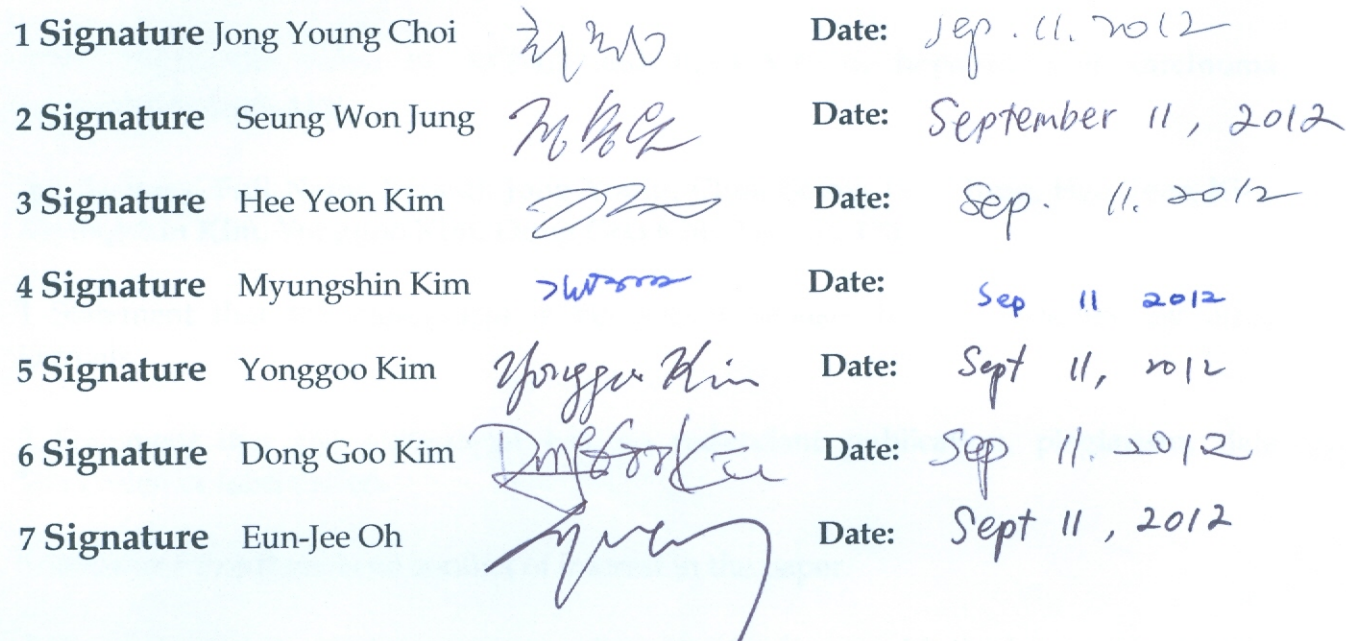 1 Signature Jong Young Choi Date: Sep. 11. 2012
2 Signature Seung Won Jung 정승원 Date: September 11, 2012
3 Signature Hee Yeon Kim Date: Sep. 11. 2012
4 Signature Myungshin Kim Date: Sep 11 2012
5 Signature Yonggoo Kim Yonggoo Kim Date: Sept 11, 2012
6 Signature Dong Goo Kim Date: Sep 11. 2012
7 Signature Eun-Jee Oh Date: Sept 11, 2012